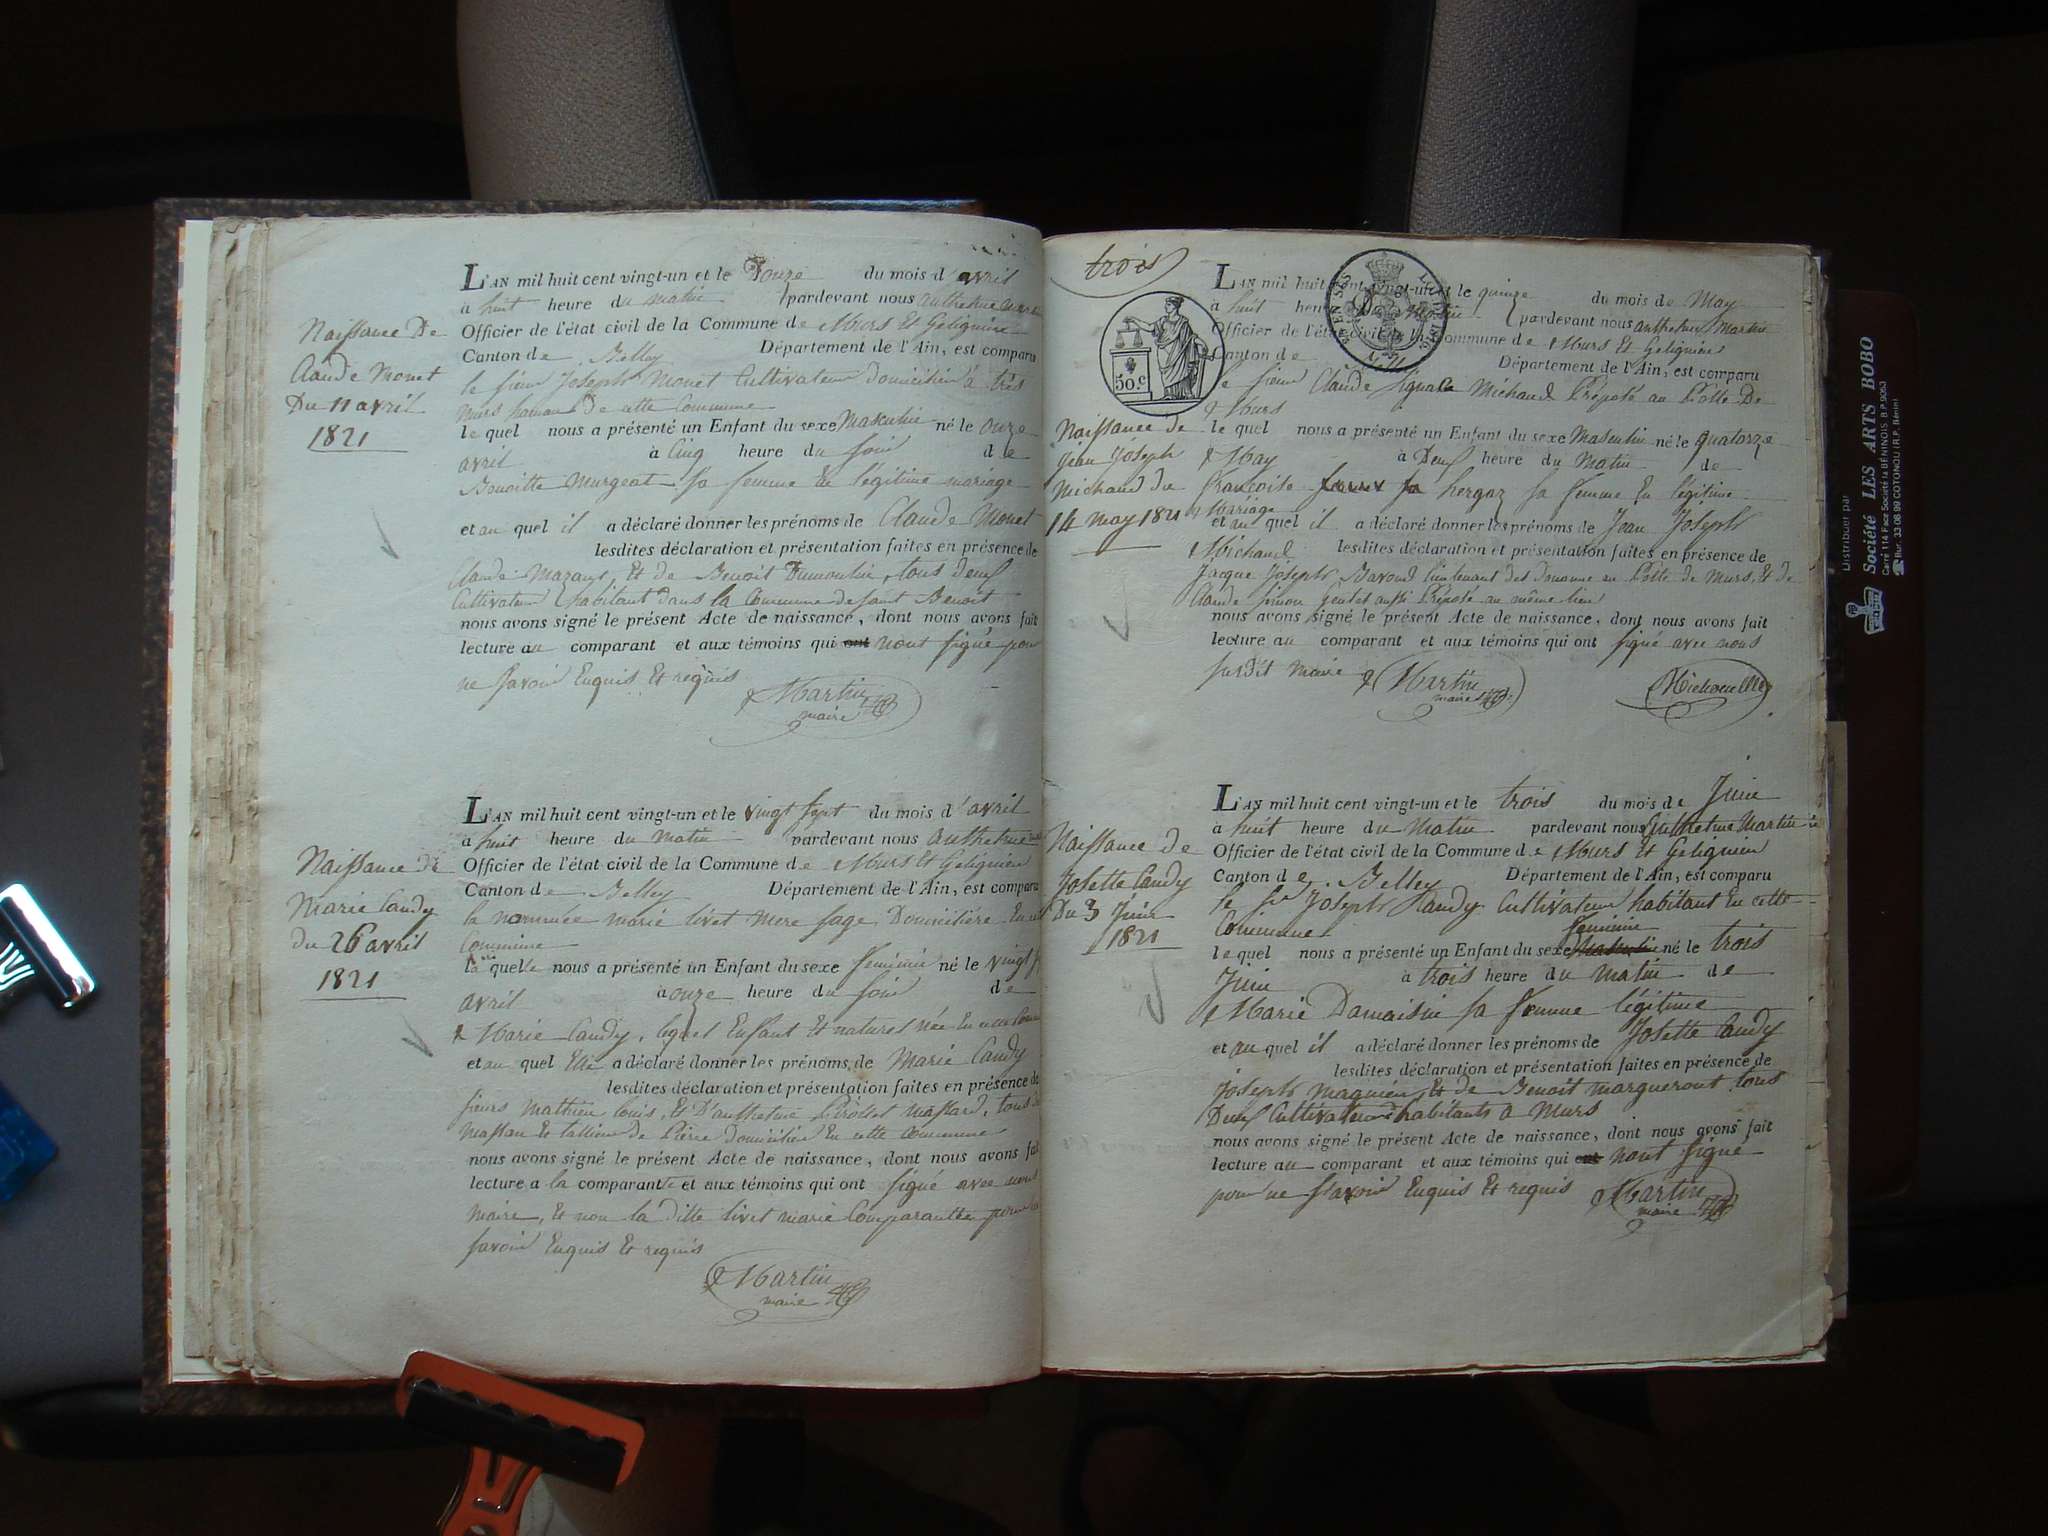 Naissance De
Claude Monet
Du 11 avril
1821
L'AN mil huit cent vingt-un et le Douze du mois d'avril
à huit heure du matin pardevant nous anthelme
Officier de l'état civil de la Commune de Murs Et Gelignieu
Canton de Belley Département de l'Ain, est comparu
le sieur Joseph Monet Cultivateur domicilié à
Murs hameau de cette Commune
le quel nous a présenté un Enfant du sexe Masculin né le onze
avril à Cinq heure du soir de
Benoitte Murgeat sa femme en légitime mariage
et au quel il a déclaré donner les prénoms de Claude Monet
lesdites déclaration et présentation faites en présence de
Claude et de Benoit Dumoulin, tous deux
Cultivateur habitant dans la Commune de saint Benoit
nous avons signé le présent Acte de naissance, dont nous avons fait
lecture au comparant et aux témoins qui ont nont signé pour
ne savoir Enquis Et requis
Martin
maire
Naissance de
Marie Candy
du 26 avril
1821
L'AN mil huit cent vingt-un et le vingt sept du mois d'avril
à huit heure du matin pardevant nous anthelme
Officier de l'état civil de la Commune de Murs Et Gelignieu
Canton de Belley Département de l'Ain, est comparu
la nommée marie livet mere sage Domiciliére En
Commune
la quelle nous a présenté un Enfant du sexe feminin né le vingt
avril à onze heure du soir de
Marie Candy, lequel Enfant Est naturel née En
et au quel Elle a déclaré donner les prénoms de Marie Candy
lesdites déclaration et présentation faites en présence de
sieurs Mathieu Louis, Et D'anthelme massard, tous
de Pierre domicilié En cette commune
nous avons signé le présent Acte de naissance, dont nous avons fait
lecture a la comparante et aux témoins qui ont signé avec nous
maire, Et non la ditte livet marie Comparante pour
savoir Enquis Et requis
Martin
maire
trois
50.c
L'AN mil huit cent vingt-un et le quinze du mois de May
à huit heure Du Matin pardevant nous anthelme Martin
Officier de l'état civil de la Commune de Murs Et Gelignieu
Canton de Département de l'Ain, est comparu
le sieur Claude Michaud Préposé au Poste De
Murs
Naissance de
Jean Joseph
Michaud du
14 may 1821
le quel nous a présenté un Enfant du sexe Masculin né le quatorze
May à Deux heure du Matin de
francoise hergoz sa femme En légitime
Mariage
et au quel il a déclaré donner les prénoms de Jean Joseph
Michaud lesdites déclaration et présentation faites en présence de
Jacque Joseph lieutenant des Douanne au Poste de Murs, Et de
Claude simon aussi Préposé au même lieu
nous avons signé le présent Acte de naissance, dont nous avons fait
lecture au comparant et aux témoins qui ont signé avec nous
susdit maire Martin
maire
Naissance de
Josette Candy
Du 3 Juin
1821
L'AN mil huit cent vingt-un et le trois du mois de Juin
à huit heure du Matin pardevant nous Anthelme Martin
Officier de l'état civil de la Commune de Murs Et Gelignieu
Canton de Belley Département de l'Ain, est comparu
le sr Joseph Candy Cultivateur habitant En cette
Commune
feminin
le quel nous a présenté un Enfant du sexe masculin né le trois
Juin à trois heure du matin de
Marie Damaisin sa femme légitime
et au quel il a déclaré donner les prénoms de Josette Candy
lesdites déclaration et présentation faites en présence de
Joseph magnien Et de Benoit margueront tous
Deux Cultivateurs habitants a Murs
nous avons signé le présent Acte de naissance, dont nous avons fait
lecture au comparant et aux témoins qui ont nont signé
pour ne savoir Enquis Et requis Martin
maire
Distribuer par
Société LES ARTS BOBO